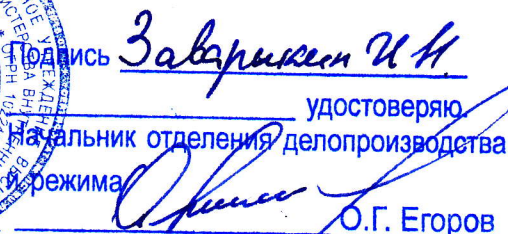 Подпись Заварыкин И Н
удостоверяю.
Начальник отделения делопроизводства
и режима
О.Г. Егоров